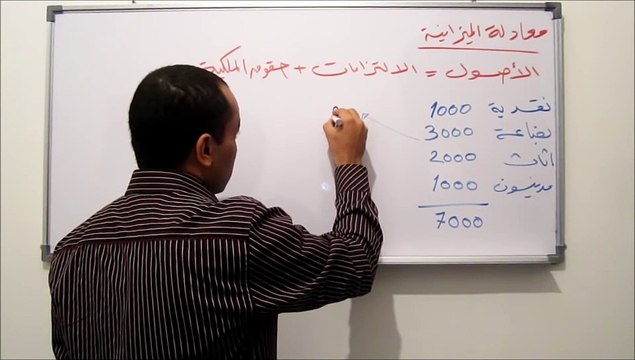 معادلة الميزانية
الأصول = الالتزامات + حقوق الملكية
نقدية 1000
بضاعة 3000
اثاث 2000
مدينون 1000
7000